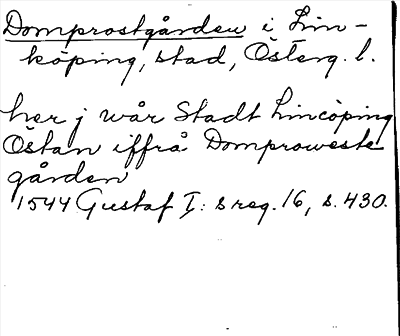 Domprostgården i Lin-
köping, stad, Österg. l.
her j wår Stadt Lincöping
Östan iffrå Domproweste
gården
1544 Gustaf I: s reg. 16, s. 430.